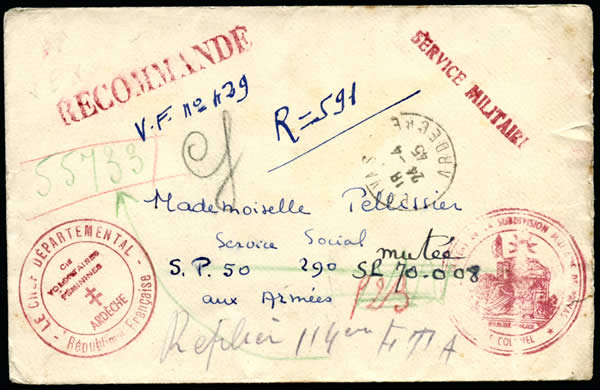 RECOMMANDÉ
SERVICE MILITAIRE
V.F. no 429
R=591
55733
ARDECHE
18
24-4
45
Mademoiselle Pellissier
Service Social
muteé
S.P. 50 290 SP. 70.008
aux Armées
LE CHEF DÉPARTEMENTAL
Cie
VOLONTAIRES
FÉMININES
ARDÈCHE
République Française
SUBDIVISION
COLONEL